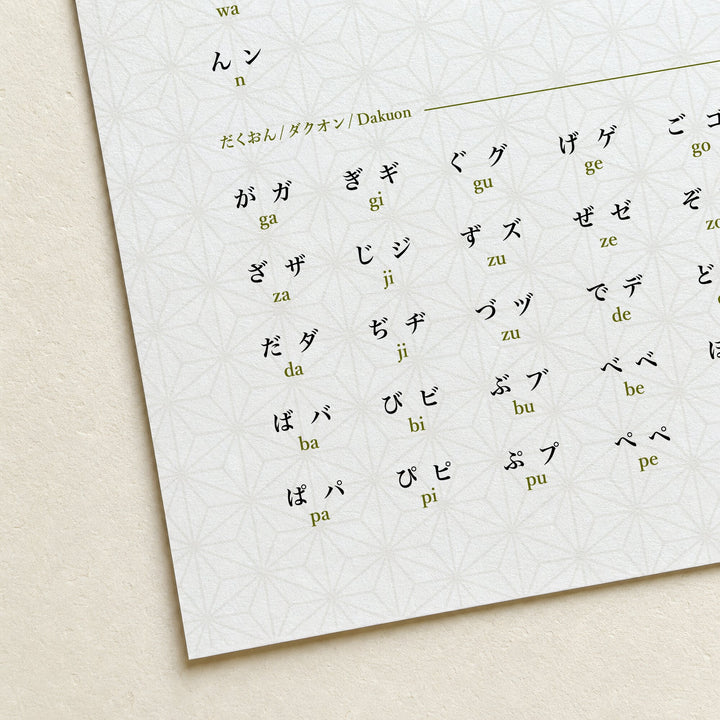 wa
ん ン
n
だくおん / ダクオン / Dakuon
が ガ ぎ ギ ぐ グ げ ゲ ご ゴ
ga gi gu ge go
ざ ザ じ ジ ず ズ ぜ ゼ ぞ
za ji zu ze zo
だ ダ ぢ ヂ づ ヅ で デ ど
da ji zu de
ば バ び ビ ぶ ブ べ ベ
ba bi bu be
ぱ パ ぴ ピ ぷ プ ぺ ペ
pa pi pu pe